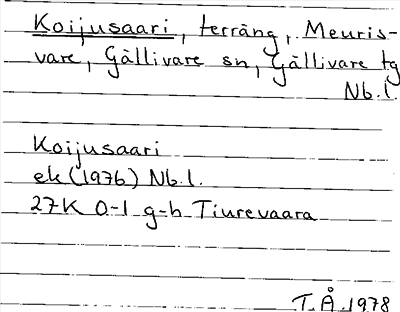 Koijusaari, terräng, Meuris-
vare, Gällivare sn, Gällivare tg
Nb.l.
Koijusaari
ek (1976) Nb.l.
27K 0-1 g-h Tiurevaara
T.Å.1978